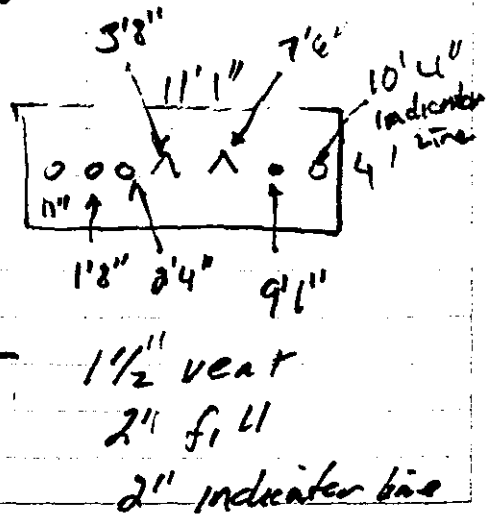 3'8"
7'6"
11'1"
10'4"
indicator
line
4'
11"
1'8" 2'4"
9'1"
1 1/2" vent
2" fill
2" indicator line